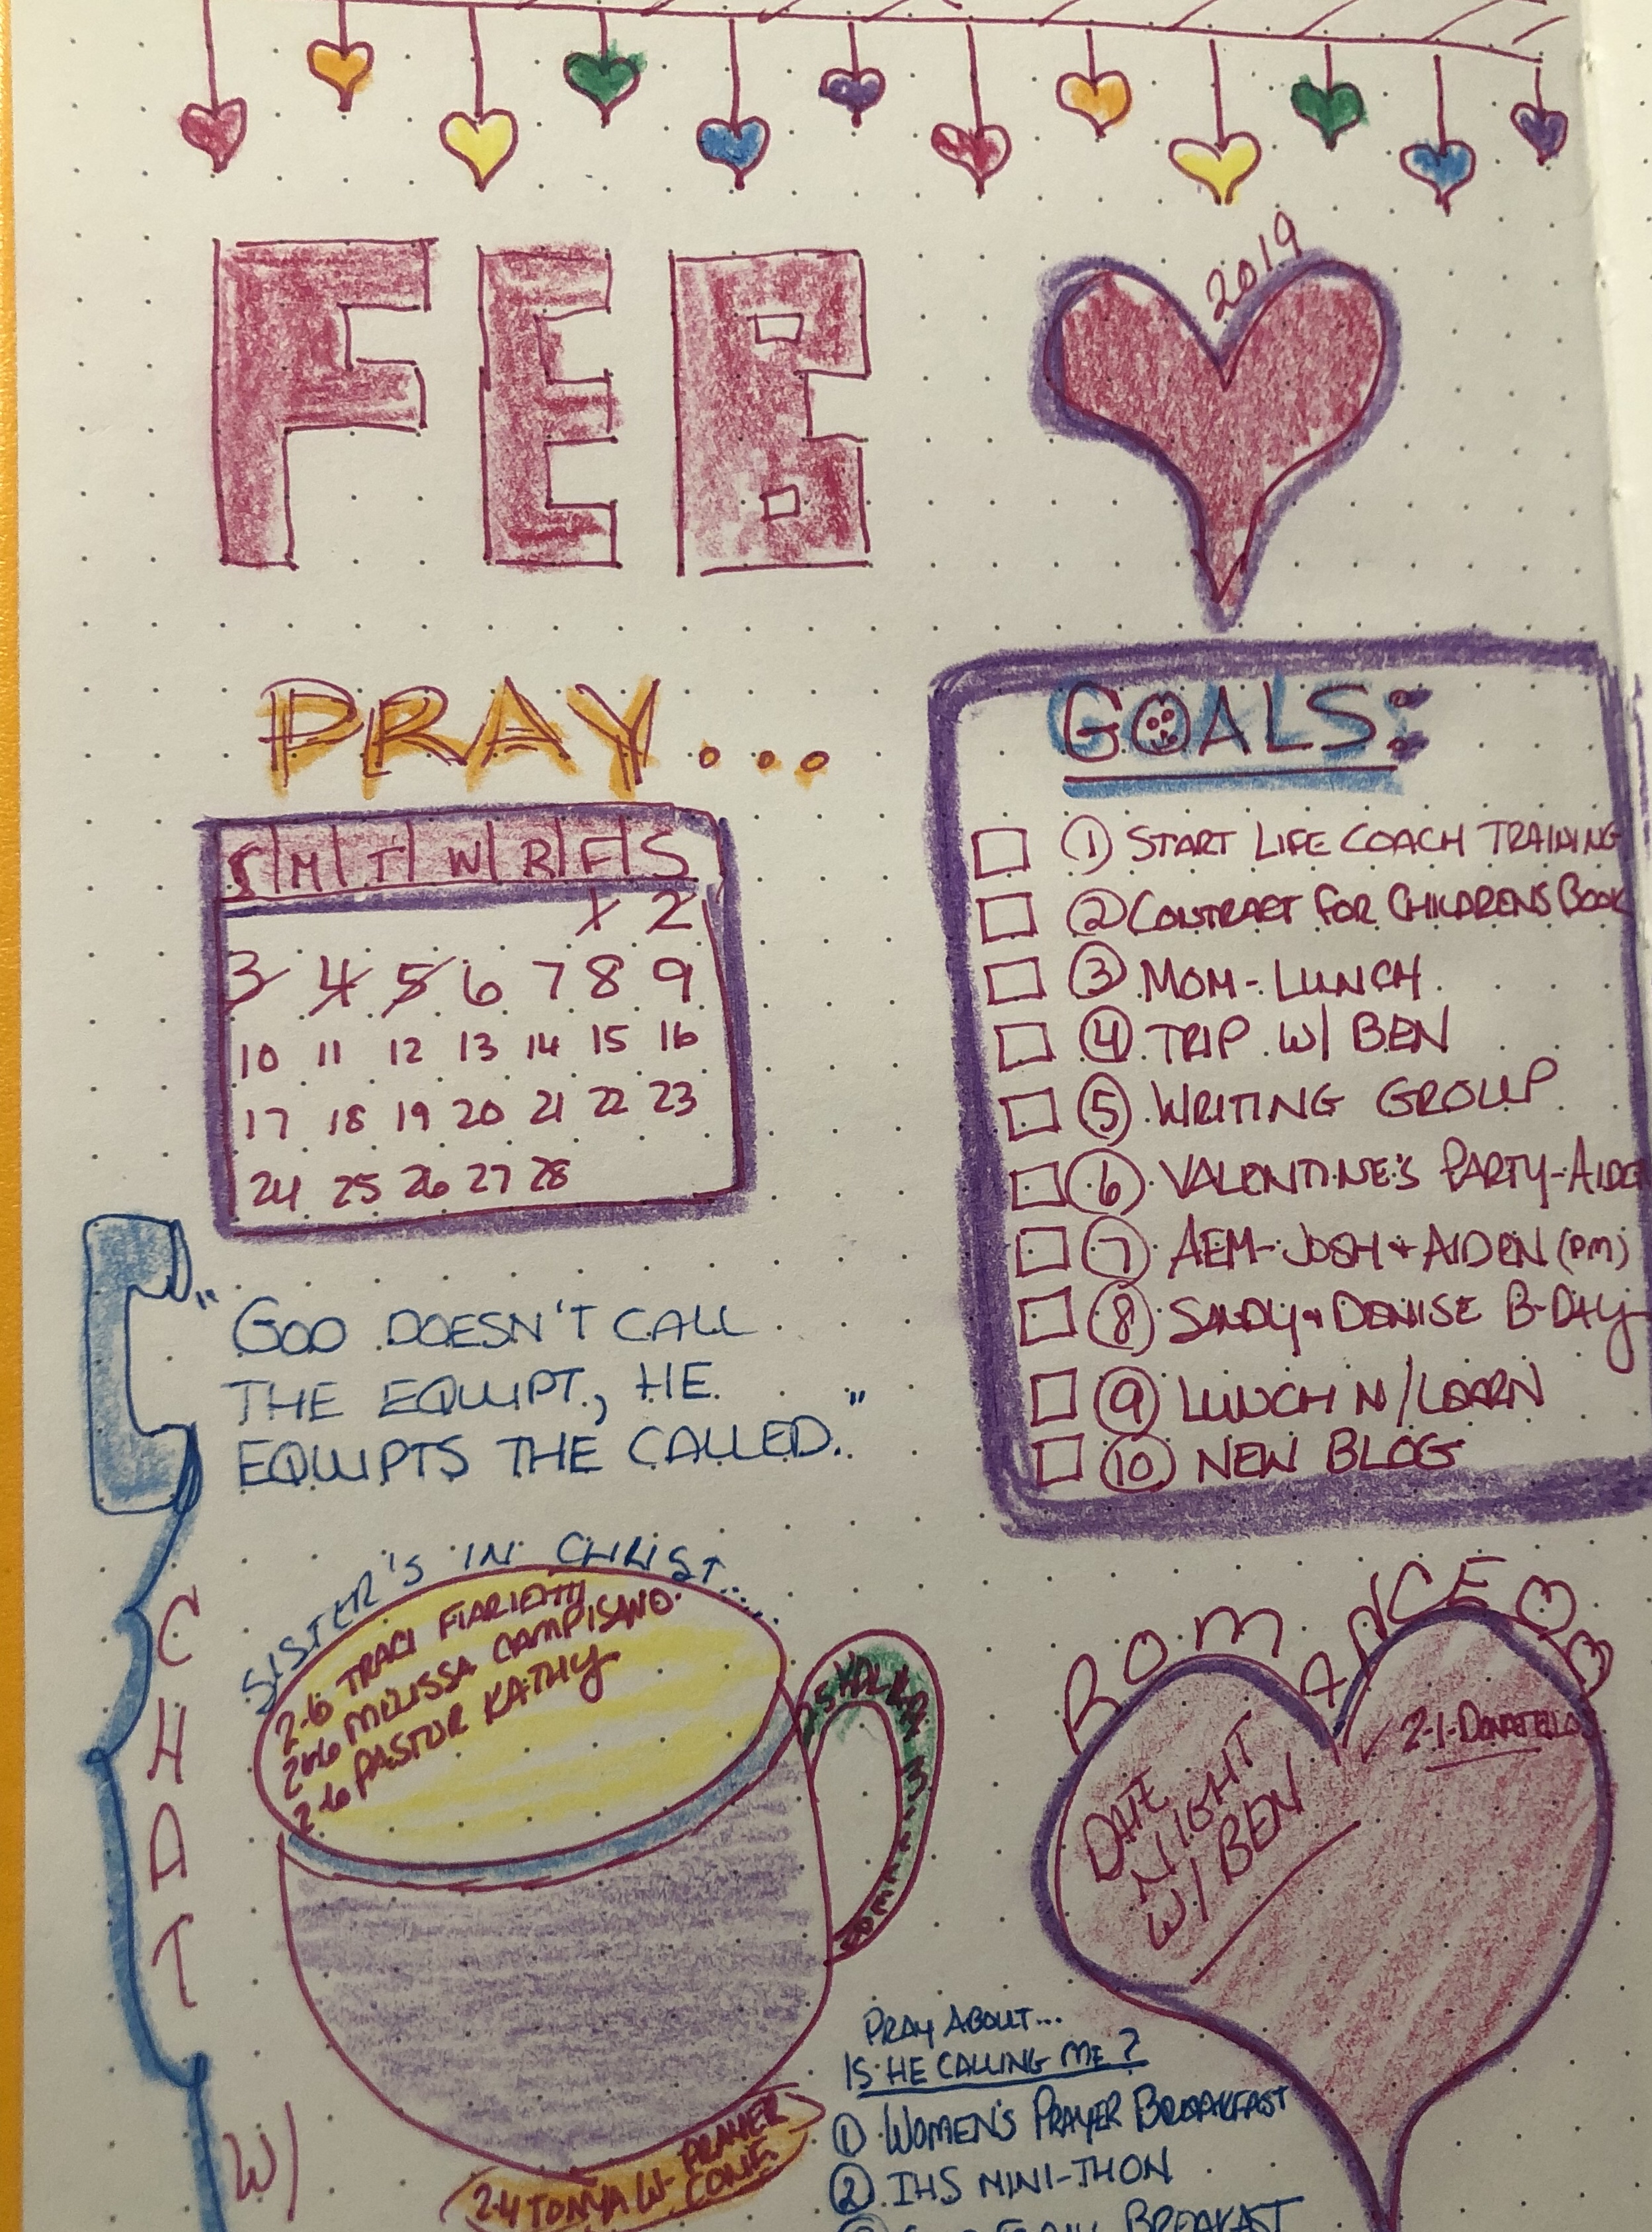 FEB
2019
PRAY...
S M T W R F S
1 2
3 4 5 6 7 8 9
10 11 12 13 14 15 16
17 18 19 20 21 22 23
24 25 26 27 28
GOALS:
① START LIFE COACH TRAINING
② CONTRACT FOR CHILDRENS BOOK
③ MOM - LUNCH
④ TRIP W/ BEN
⑤ WRITING GROUP
⑥ VALENTINE'S PARTY-
⑦ AEM- JOSH + AIDEN (PM)
⑧ SANDY + DENISE B-DAY
⑨ LUNCH N/LEARN
⑩ NEW BLOG
"GOD DOESN'T CALL
THE EQUIPT, HE
EQUIPTS THE CALLED."
CHAT
W/
SISTER'S IN CHRIST...
2-6 TRACI
2-6 MELISSA CAMPISANO
2-6 PASTOR KATHY
2-4 TONYA W- PRAYER
CONF.
ROMANCE
DATE
NIGHT
W/ BEN
2-1-DONATELLOS
PRAY ABOUT...
IS HE CALLING ME?
① WOMEN'S PRAYER BREAKFAST
② IHS MINI-THON
BREAKAST